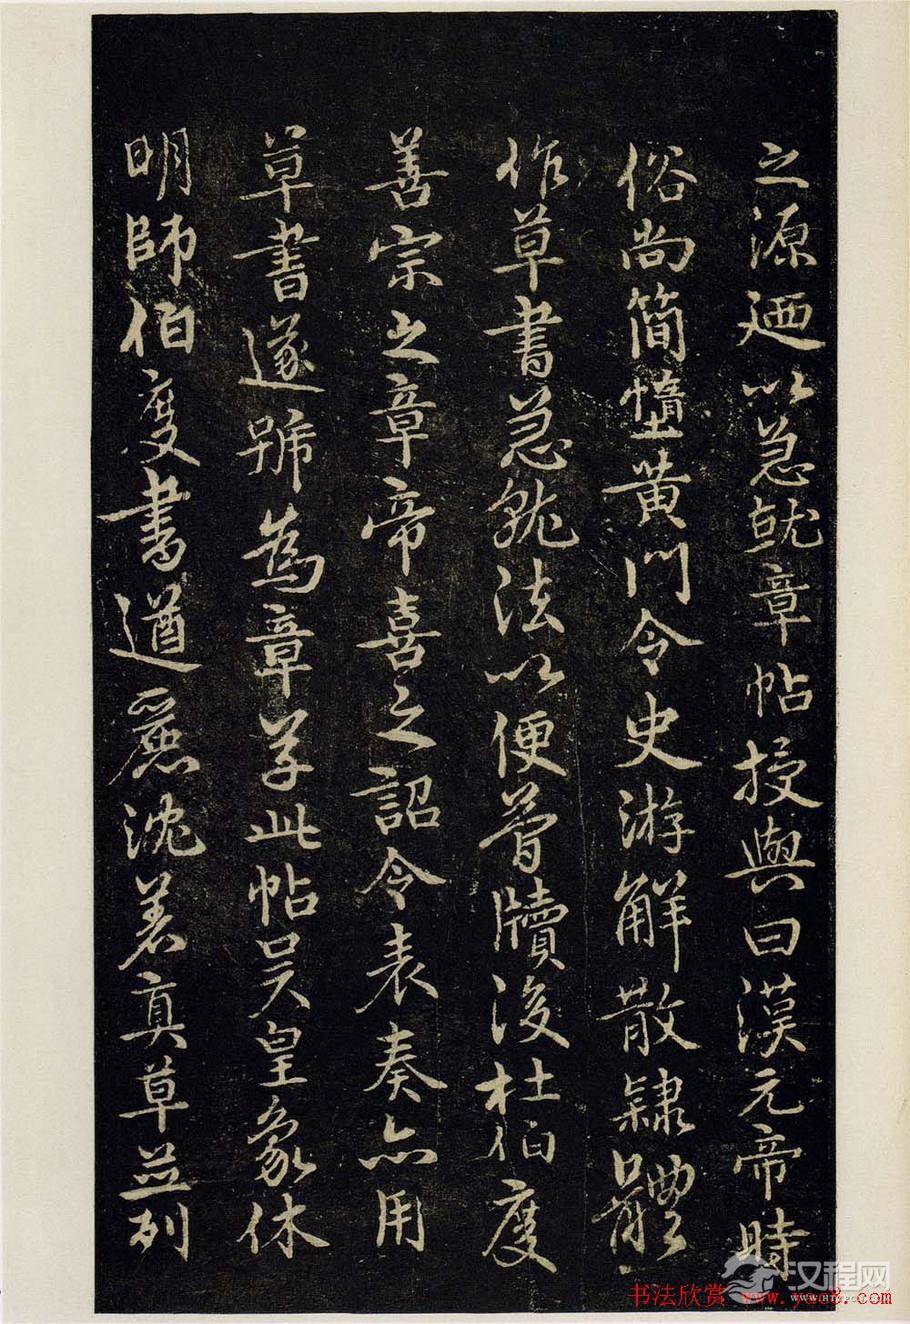 之源廼以急就章帖授與曰漢元帝時
俗尚簡惰黄門令史游解散隷體
作草書急就法以便簡牘後杜伯度
善宗之章帝喜之詔令表奏亦用
草書遂號為章草此帖吴皇象休
明師伯度書遒麗沈著真草並列
汉程网
书法欣赏 www.yac8.com